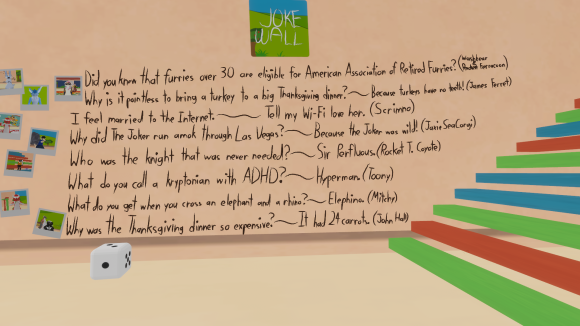 JOKE
WALL
Did you know that furries over 30 are eligible for American Association of Retired Furries? (Washbear Rocket Farracoon)
Why is it pointless to bring a turkey to a big Thanksgiving dinner?~ Because turkeys have no teeth! (James Ferret)
I feel married to the Internet.~ Tell my Wi-Fi love her. (Scrimno)
Why did The Joker run amok through Las Vegas?~ Because the Joker was wild! (JaniSeaCorgi)
Who was the knight that was never needed?~ Sir Perfluous. (Rocket T. Coyote)
What do you call a kryptonian with ADHD?~ Hyperman. (Toony)
What do you get when you cross an elephant and a rhino?~ Elephino. (Mitchy)
Why was the Thanksgiving dinner so expensive?~ It had 24 carrots. (John Hall)